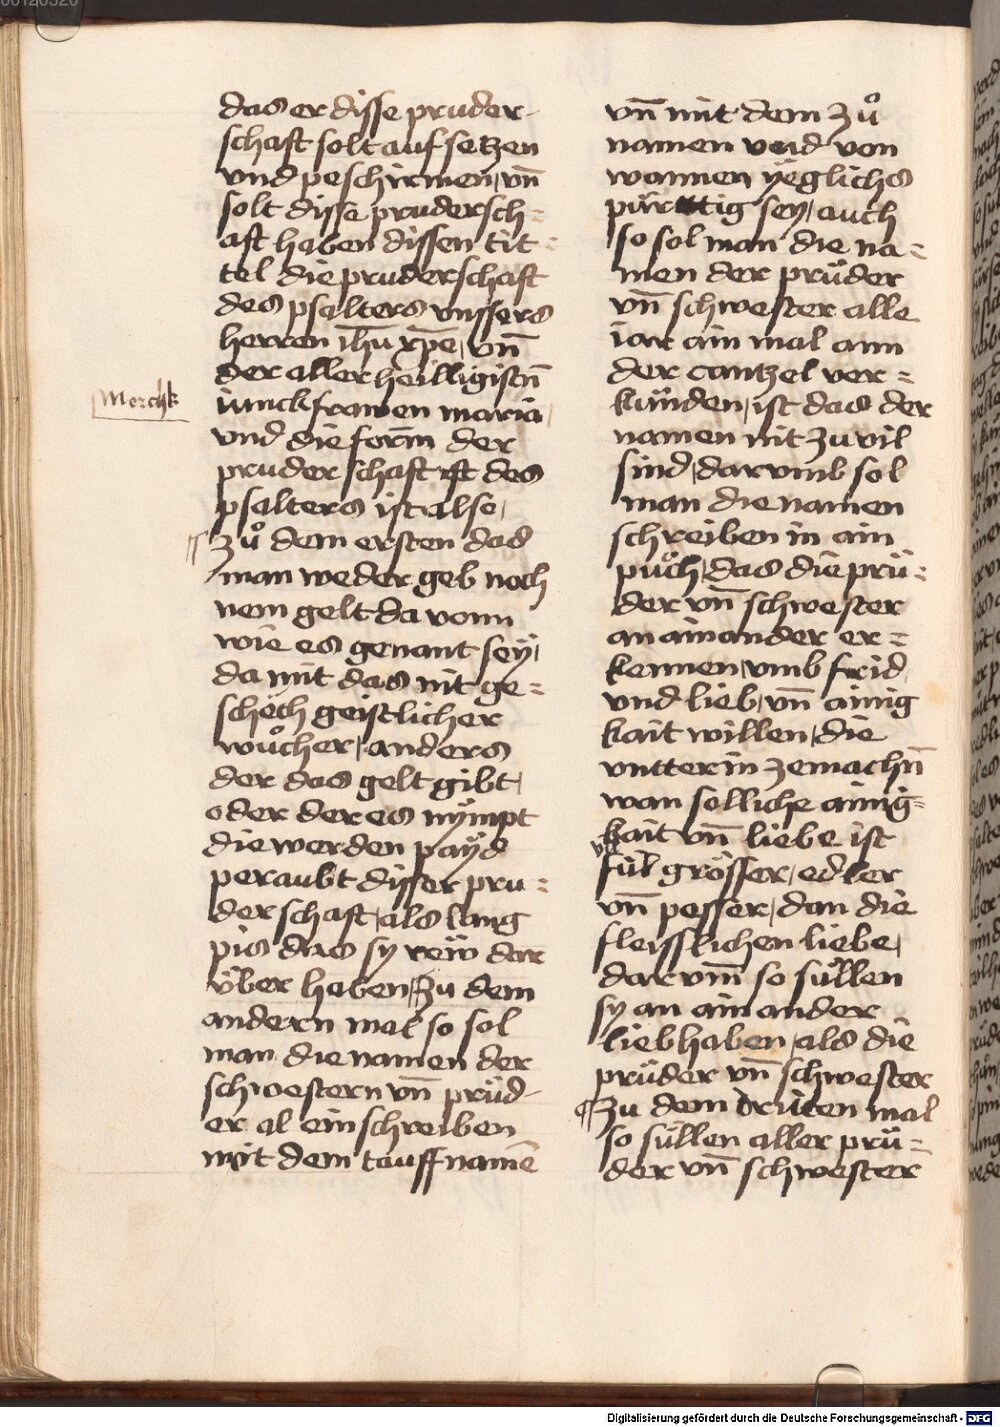 das er disse pruder-
schaft solt auf setzen
vnd peschirmen, vn̄
solt disse prudersch=
aft haben dissen tit=
tel die pruderschaft
des psalters vnssers
herren ih̄u xp̄e, vn̄
der aller heilligistn̄
Merckh
iunckfrawen maria,
vnd die form der
pruderschaft des
psalters ist also,
zů dem ersten das
man weder geb noch
nem gelt da vonn
wie es genant seÿ,
da mit das nit ge=
schech geistlicher
wůcher, anders
der das gelt gibt,
oder der es nÿmpt
die werden payd
peraubt disser pru=
derschaft, als lang
pis das sy rew dar
über haben, Zu dem
andern mal so sol
man die namen der
schwestern vn̄ prüd-
er al einschreiben
mit dem tauff namē
vn̄ mit dem zů
namen vnd von
wannen yeglichs
pürttig sey, auch
so sol man die na=
men der prüder
vn̄ schwester alle
iar ain mal ann
der cantzel ver=
künden, ist das der
namen nit zu vil
sind, darumb sol
man die namen
schreiben in ain
půch, das die prü=
der vn̄ schwester
an ainander er=
kennen, vmb frid
vnd lieb, vn̄ ainig
kait willen, die
vntter in zemachn̄
wan solliche ainig=
kait vn̄ liebe ist
vil grösser, edler
vn̄ pesser, dan die
fleisslichen liebe,
dar vm̄ so süllen
sy an ain ander
lieb haben, als die
prüder vn̄ schwester
Zu dem driten mal
so süllen aller prü=
der vn̄ schwester
Digitalisierung gefördert durch die Deutsche Forschungsgemeinschaft - DFG